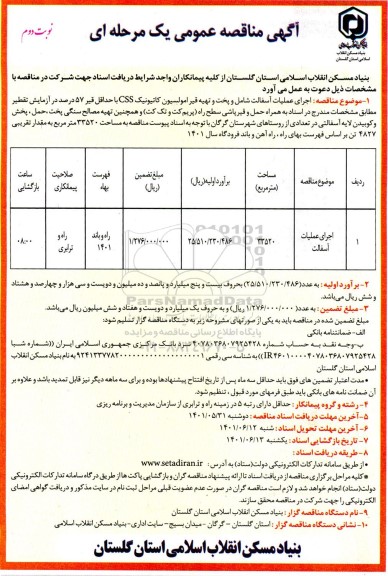 آگهی مناقصه عمومی یک مرحله ای
نوبت دوم
بنیاد مسکن انقلاب اسلامی استان گلستان از کلیه پیمانکاران واجد شرایط دریافت اسناد جهت شرکت در مناقصه با
مشخصات ذیل دعوت به عمل می آورد
۱-موضوع مناقصه: اجرای عملیات آسفالت شامل و پخت و تهیه قیر امولسیون کاتیونیک CSS با حداقل قیر ۵۷ درصد در آزمایش تقطیر
مطابق مشخصات مندرج در اسناد به همراه حمل و قیرپاشی سطح راه (پریمکت و تک کت) و همچنین تهیه مصالح سنگی پخت، حمل، پخش
و کوبیدن لایه آسفالتی در تعدادی از روستاهای شهرستان گرگان با توجه به اسناد پیوست مناقصه به مساحت ۳۳۵۲۰ متر مربع به مقدار تقریبی
۴۸۲۷ تن بر اساس فهرست بهای راه، راه آهن و باند فرودگاه سال ۱۴۰۱
ردیف موضوع مناقصه مساحت (مترمربع) برآورد اولیه (ریال) مبلغ تضمین (ریال) فهرست بهاء صلاحیت پیمانکاری ساعت بازگشایی
۱ اجرای عملیات آسفالت ۳۳۵۲۰ ۲۵/۵۱۰/۲۳۰/۴۸۶ ۱/۲۷۶/۰۰۰/۰۰۰ راه و باند ۱۴۰۱ راه و ترابری ۰۸:۰۰
۲- برآورد اولیه: به عدد (۲۵/۵۱۰/۲۳۰/۴۸۶) بحروف بیست و پنج میلیارد و پانصد و ده میلیون و دویست و سی هزار و چهارصد و هشتاد
و شش ریال می باشد.
۳- مبلغ تضمین: به عدد (۱/۲۷۶/۰۰۰/۰۰۰ ریال) و به حروف یک میلیارد و دویست و هفتاد و شش میلیون ریال می باشد.
مبلغ تضمین شده در مناقصه باید به یکی از صورتهای مشروحه زیر به دستگاه مناقصه گزار تسلیم شود:
الف- ضمانتنامه بانکی
استان گلستان
مدت اعتبار تضمین های فوق باید حداقل سه ماه پس از تاریخ افتتاح پیشنهادها بوده و برای سه ماهه دیگر نیز قابل تمدید باشد و علاوه بر
آن ضمانت نامه های بانکی باید طبق فرمهای مورد قبول، تنظیم شود.
۴- رشته و گروه پیمانکار: حداقل دارای رتبه ۵ در زمینه راه و ترابری از سازمان مدیریت و برنامه ریزی
۵- آخرین مهلت دریافت اسناد مناقصه: دوشنبه ۱۴۰۱/۰۵/۳۱
۶- آخرین مهلت تحویل اسناد: شنبه ۱۴۰۱/۰۶/۱۲
۷- تاریخ بازگشایی اسناد: یکشنبه ۱۴۰۱/۰۶/۱۳
۸- طریقه دریافت اسناد:
از طریق سامانه تدارکات الکترونیکی دولت (ستاد) به آدرس: www.setadiran.ir
کلیه مراحل برگزاری مناقصه از دریافت اسناد تا ارائه پیشنهاد مناقصه گران و بازگشایی پاکت ها از طریق درگاه سامانه تدارکات الکترونیکی
دولت (ستاد) انجام خواهد شد و لازم است مناقصه گران در صورت عدم عضویت قبلی مراحل ثبت نام در سایت مذکور و دریافت گواهی امضای
الکترونیکی را جهت شرکت در مناقصه محقق سازند.
۹- نام دستگاه مناقصه گزار: بنیاد مسکن انقلاب اسلامی استان گلستان
۱۰- نشانی دستگاه مناقصه گزار: استان گلستان - گرگان - میدان بسیج - سایت اداری - بنیاد مسکن انقلاب اسلامی
بنیاد مسکن انقلاب اسلامی استان گلستان